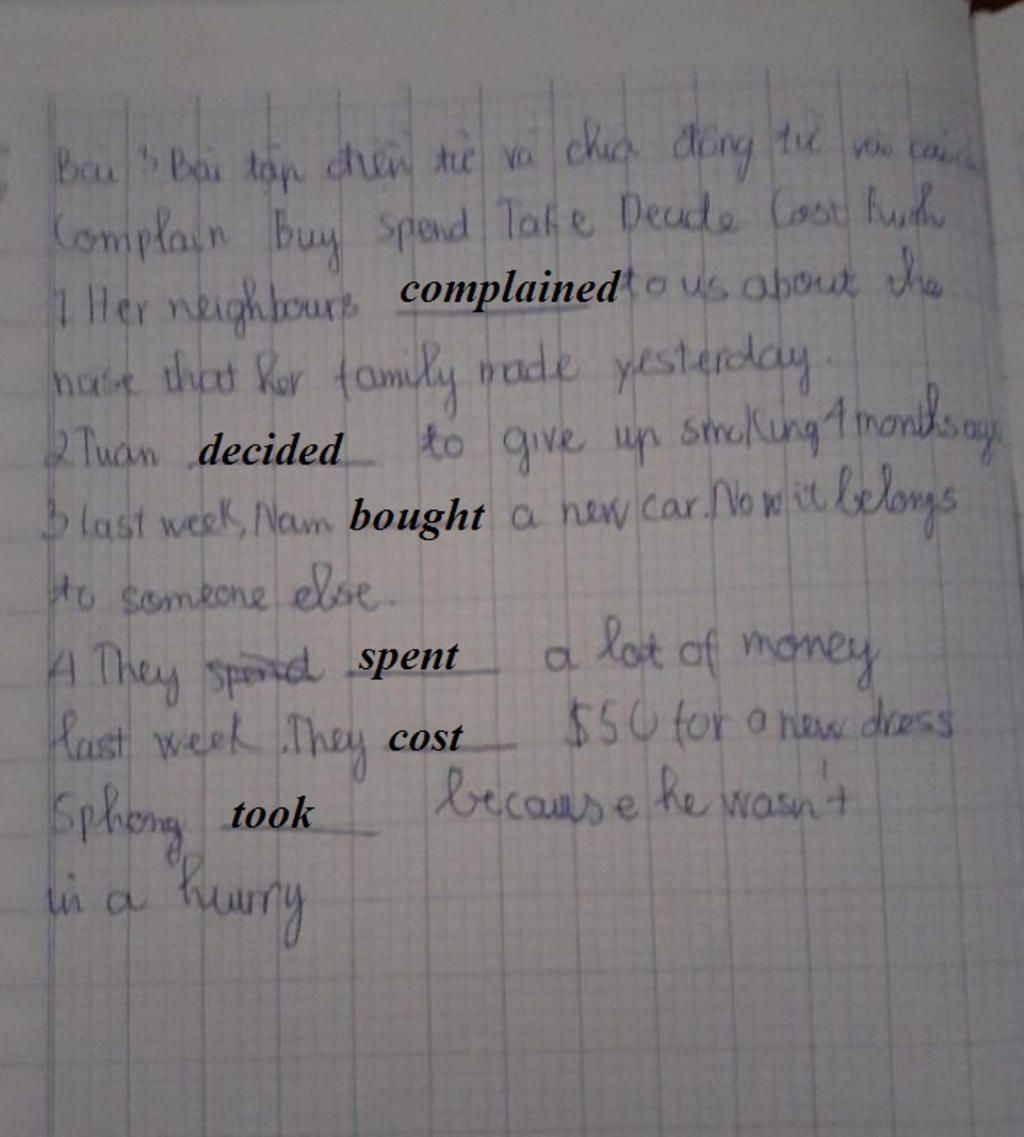 Bài 3 Bài tập điền từ và chia động từ vào
Complain Buy Spend Take Decide Cost
1 Her neighbours complained to us about the
noise that her family made yesterday.
2 Tuan decided to give up smoking 4 months ago
3 last week, Nam bought a new car. Now it belongs
to someone else.
4 They spend spent a lot of money
last week. They cost $50 for a new dress
5 phong took because he wasn't
in a hurry